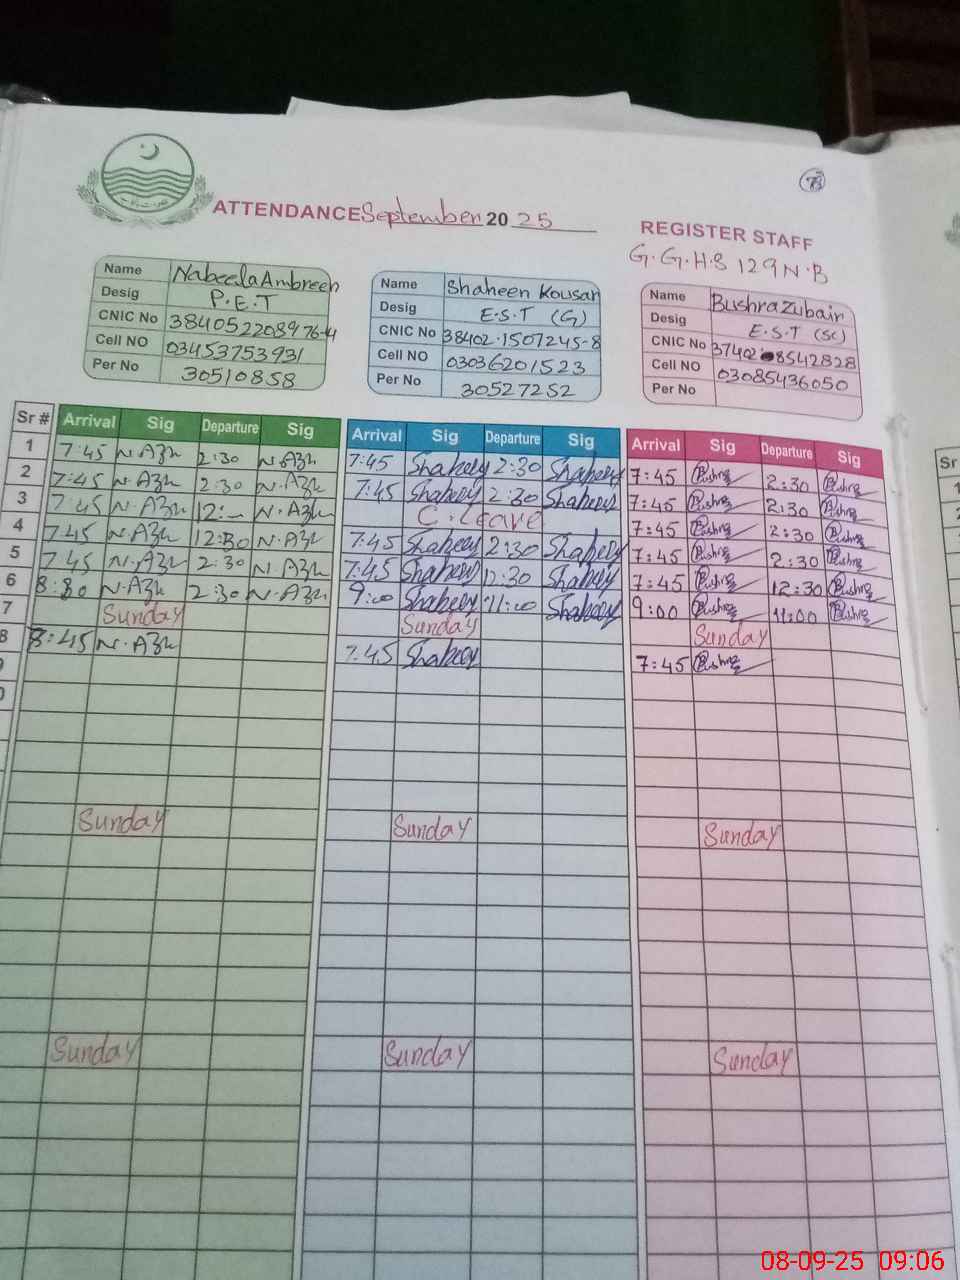 78
ATTENDANCE September 2025
REGISTER STAFF
G.G.H.S 129 N.B
Name Nabeela Ambreen
Desig P.E.T
CNIC No 384052208976-4
Cell NO 03453753931
Per No 30510858
Name Shaheen Kousar
Desig E.S.T (G)
CNIC No 38402-1507245-8
Cell NO 03036201523
Per No 30527252
Name Bushra Zubair
Desig E.S.T (SC)
CNIC No 37402 8542828
Cell NO 03085436050
Per No
Sr # Arrival Sig Departure Sig Arrival Sig Departure Sig Arrival Sig Departure Sig
1 7:45 2:30 7:45 Shaheen 2:30 Shaheen 7:45 Bushra 2:30 Bushra
2 7:45 2:30 7:45 Shaheen 2:30 Shaheen 7:45 Bushra 2:30 Bushra
3 7:45 12:- C.Leave 7:45 Bushra 2:30 Bushra
4 7:45 12:30 7:45 Shaheen 2:30 Shaheen 7:45 Bushra 2:30 Bushra
5 7:45 2:30 7:45 Shaheen 12:30 Shaheen 7:45 Bushra 12:30 Bushra
6 8:30 2:30 9:00 Shaheen 11:00 Shaheen 9:00 Bushra 11:00 Bushra
7 Sunday Sunday Sunday
8 7:45 Shaheen 7:45 Bushra
Sunday Sunday Sunday
Sunday Sunday Sunday
Sr
1
2
08-09-25 09:06